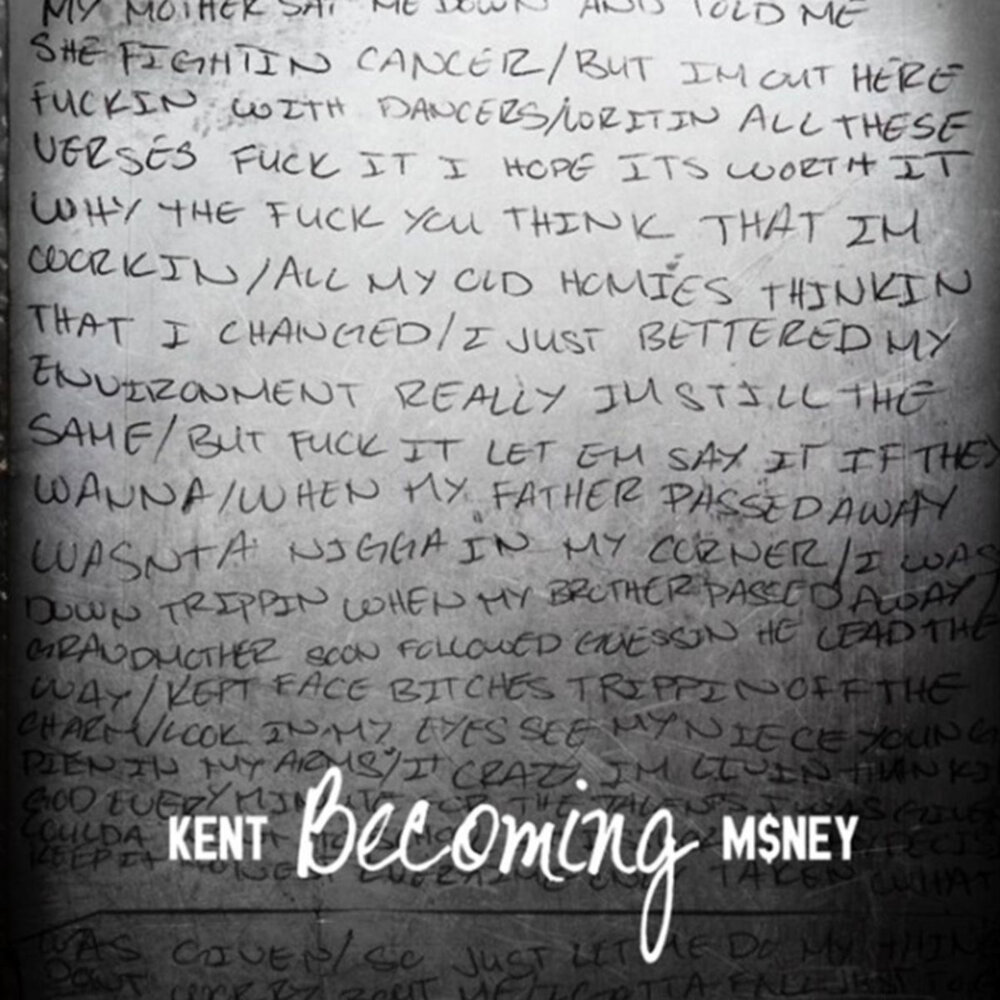 MY MOTHER SAT ME DOWN AND TOLD ME
SHE FIGHTIN CANCER/BUT IM OUT HERE
FUCKIN WITH DANCERS/WRITIN ALL THESE
VERSES FUCK IT I HOPE ITS WORTH IT
WHY THE FUCK YOU THINK THAT IM
WORKIN/ALL MY OLD HOMIES THINKIN
THAT I CHANGED/I JUST BETTERED MY
ENVIRONMENT REALLY IM STILL THE
SAME/BUT FUCK IT LET EM SAY IT IF THEY
WANNA/WHEN MY FATHER PASSED AWAY
WASNT A NIGGA IN MY CORNER/I WAS
DOWN TRIPPIN WHEN MY BROTHER PASSED AWAY/
GRANDMOTHER SOON FOLLOWED GUESSIN HE LEAD THE
WAY/KEPT FACE BITCHES TRIPPIN OFF THE
CHARM/LOOK IN MY EYES SEE MY NIECE YOUNG
DIEN IN MY ARMS/IT CRAZY IM LIVIN THANK
GOD EVERY MINUTE FOR THE TALENTS I WAS GIVEN
COULDA
KENT Becoming M$NEY
KEEP IT TAKEN WHAT
WAS GIVEN/SO JUST LET ME DO MY THING
DONT